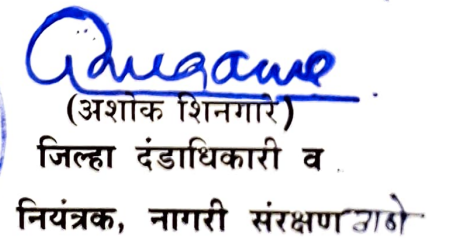 (अशोक शिनगारे)
जिल्हा दंडाधिकारी व
नियंत्रक, नागरी संरक्षण